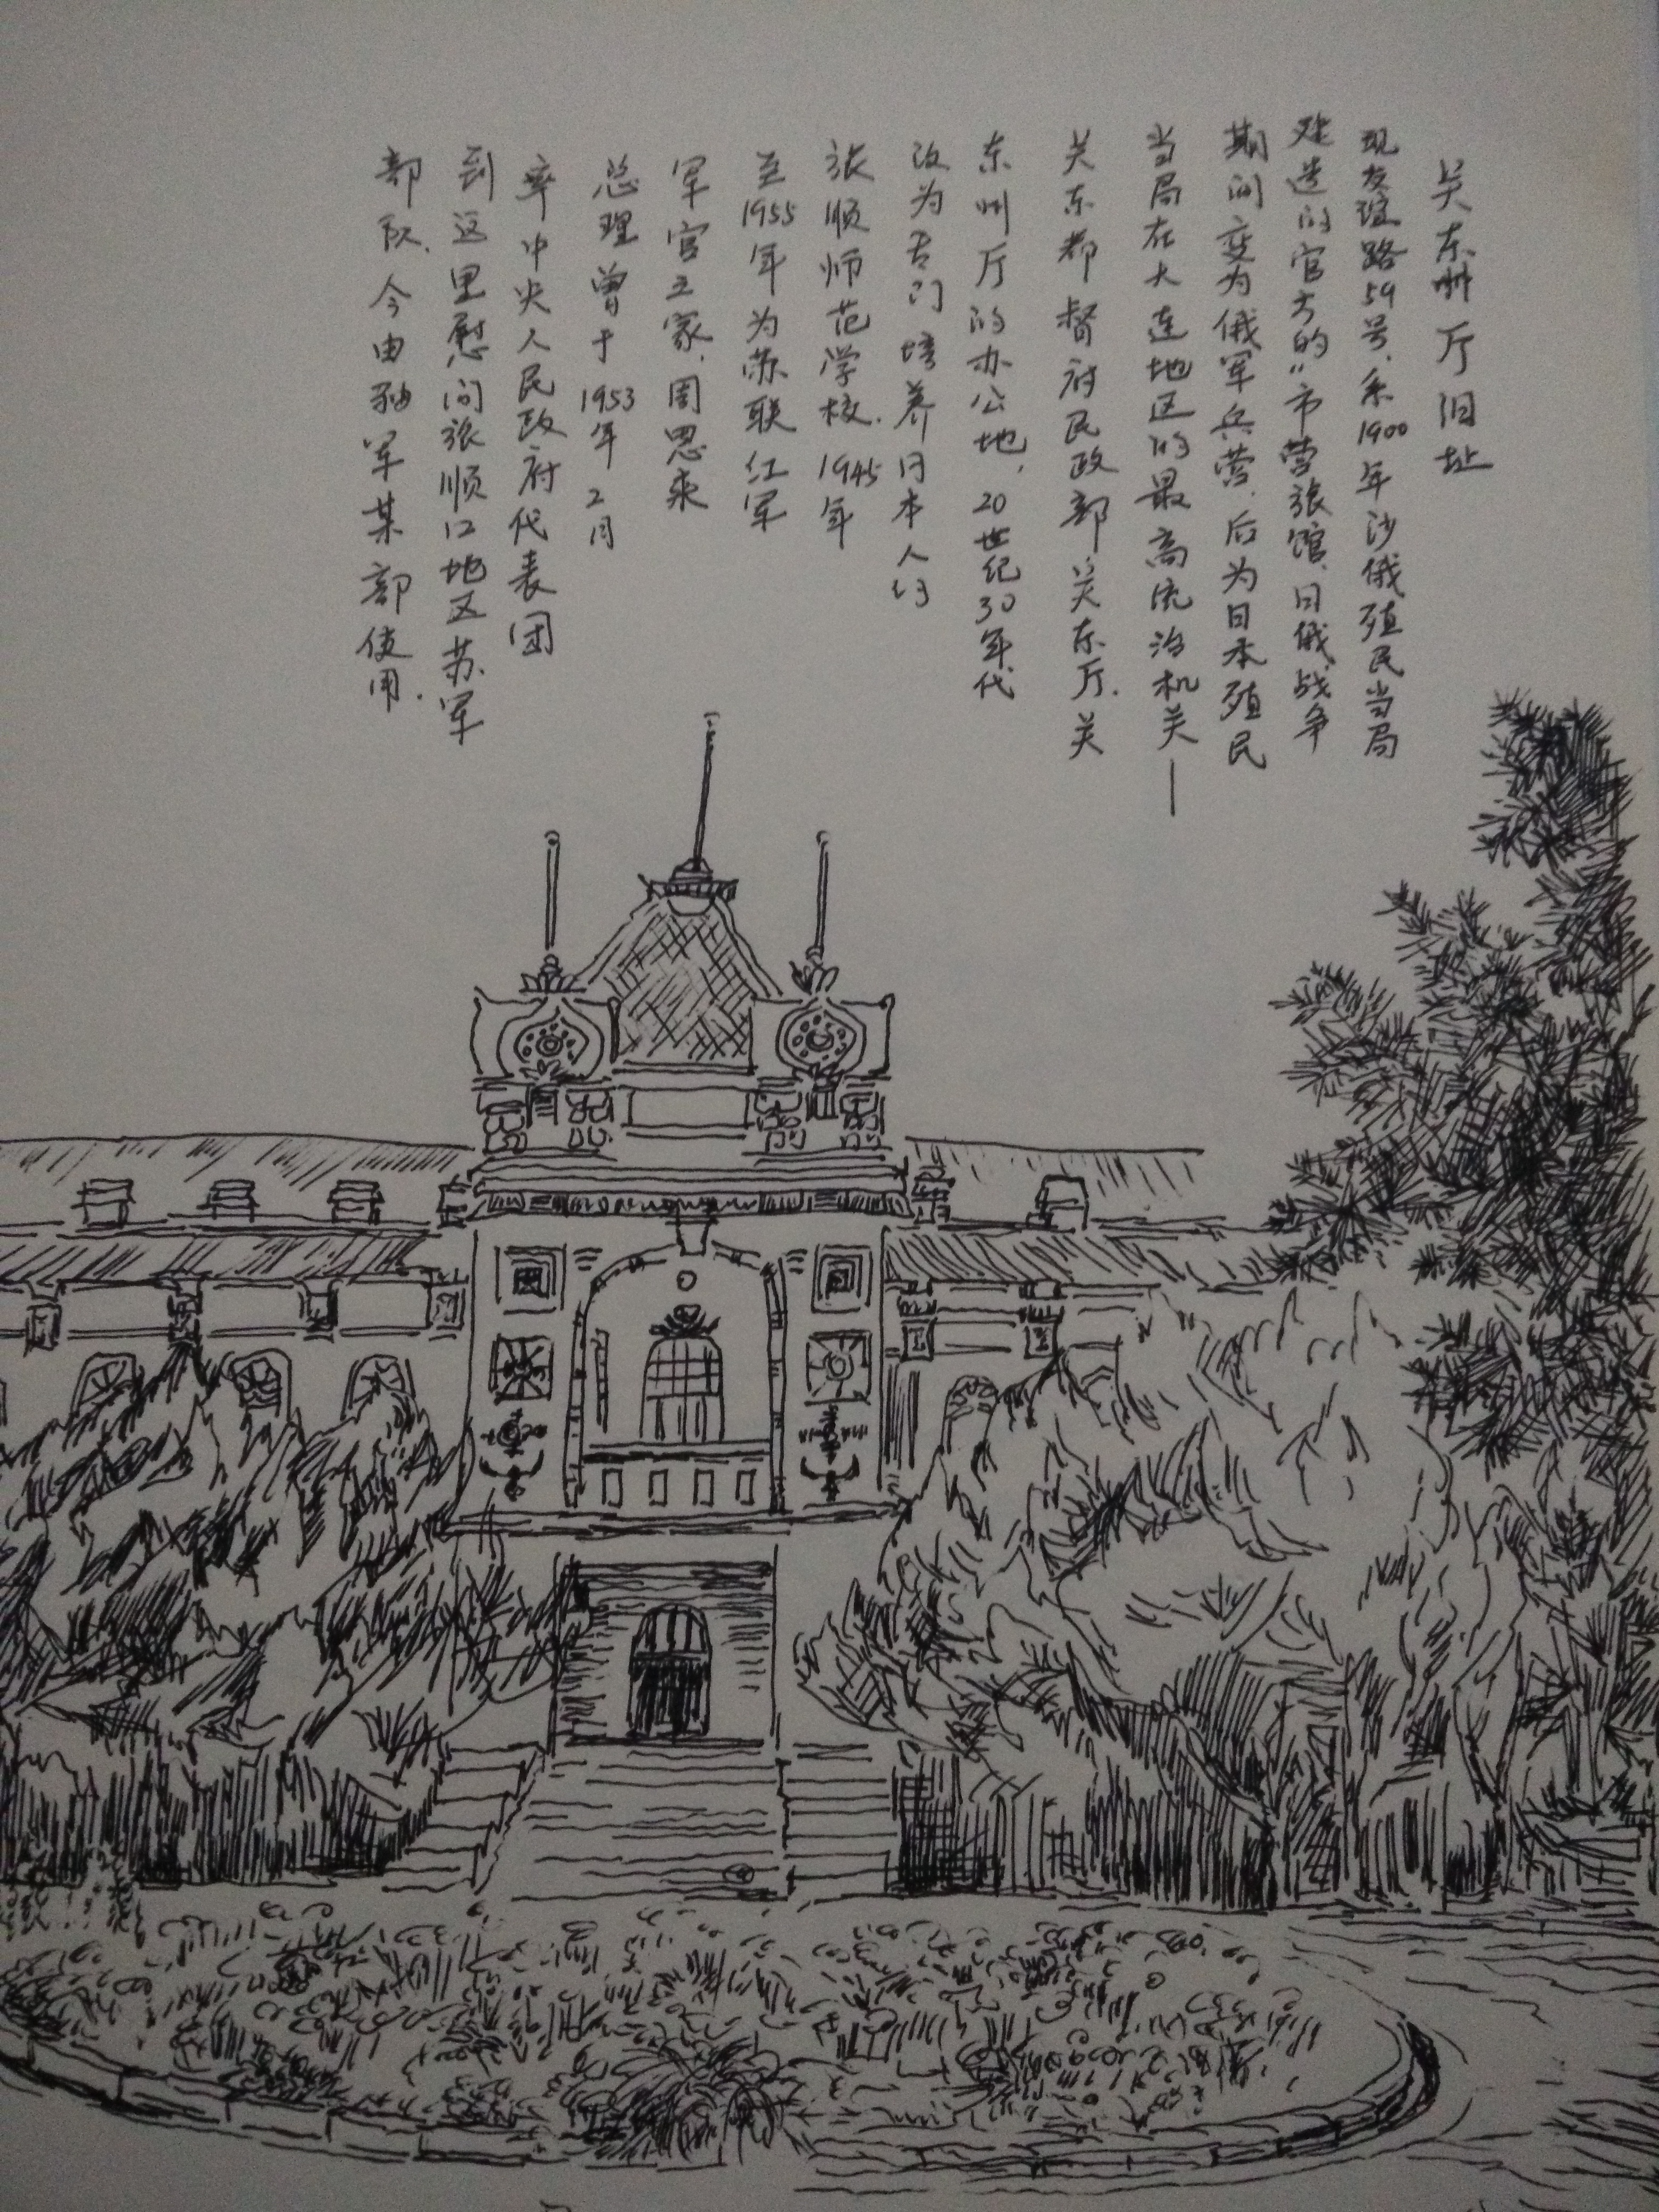 关东州厅旧址
现友谊路59号,系1900年沙俄殖民当局
建造的官方的“市营旅馆,日俄战争
期间变为俄军兵营,后为日本殖民
当局在大连地区的最高统治机关—
关东都督府民政部、关东厅.关
东州厅的办公地,20世纪30年代
改为专门培养日本人的
旅顺师范学校.1945年
至1955年为苏联红军
军官之家,周恩来
总理曾于1953年2月
率中央人民政府代表团
到这里慰问旅顺口地区苏军
部队.今由海军某部使用.